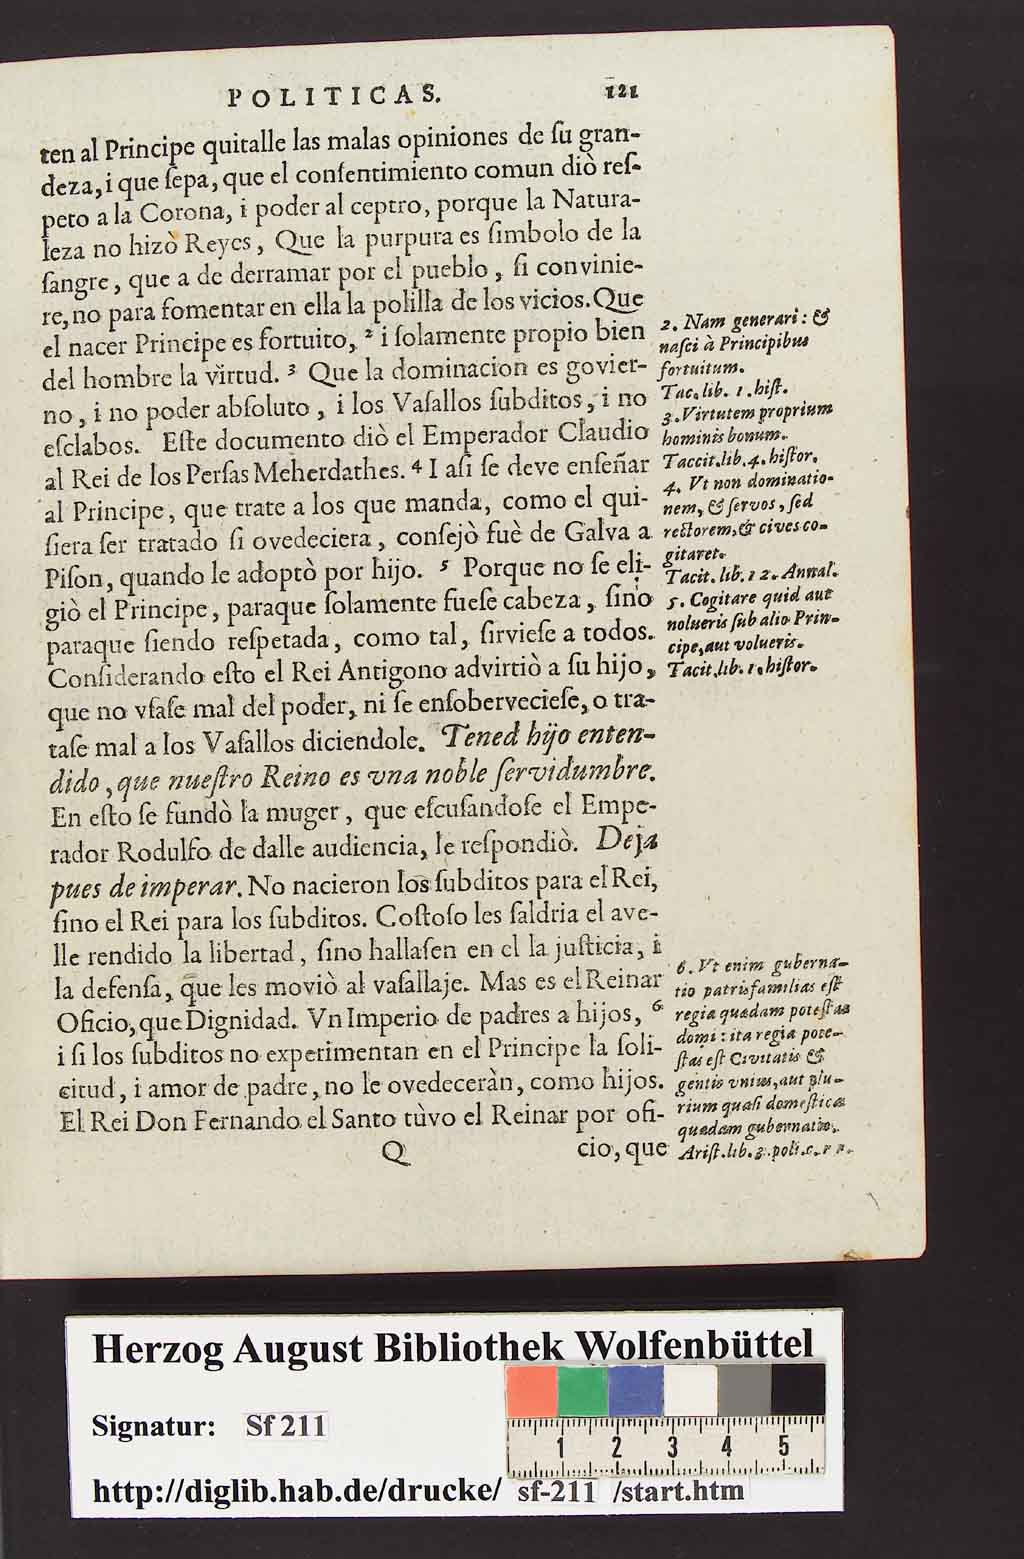 POLITICAS. 121
ten al Principe quitalle las malas opiniones de ſu gran-
deza, i que ſepa, que el conſentimiento comun diò reſ-
peto a la Corona, i poder al ceptro, porque la Natura-
leza no hizò Reyes, Que la purpura es ſimbolo de la
ſangre, que a de derramar por el pueblo, ſi convinie-
re, no para fomentar en ella la polilla de los vicios. Que
el nacer Principe es fortuito, ² i ſolamente propio bien
del hombre la virtud. ³ Que la dominacion es govier-
no, i no poder abſoluto, i los Vaſallos ſubditos, i no
eſclabos. Eſte documento diò el Emperador Claudio
al Rei de los Perſas Meherdathes. ⁴ I aſi ſe deve enſeñar
al Principe, que trate a los que manda, como el qui-
ſiera ſer tratado ſi ovedeciera, conſejò fuè de Galva a
Piſon, quando le adoptò por hijo. ⁵ Porque no ſe eli-
giò el Principe, paraque ſolamente fueſe cabeza, ſino
paraque ſiendo reſpetada, como tal, ſirvieſe a todos.
Conſiderando eſto el Rei Antigono advirtiò a ſu hijo,
que no vſaſe mal del poder, ni ſe enſobervecieſe, o tra-
taſe mal a los Vaſallos diciendole. Tened hijo enten-
dido, que nueſtro Reino es vna noble ſervidumbre.
En eſto ſe fundò la muger, que eſcuſandoſe el Empe-
rador Rodulfo de dalle audiencia, le reſpondiò. Deja
pues de imperar. No nacieron los ſubditos para el Rei,
ſino el Rei para los ſubditos. Coſtoſo les ſaldria el ave-
lle rendido la libertad, ſino hallaſen en el la juſticia, i
la defenſa, que les moviò al vaſallaje. Mas es el Reinar
Oficio, que Dignidad. Vn Imperio de padres a hijos, ⁶
i ſi los ſubditos no experimentan en el Principe la ſoli-
citud, i amor de padre, no le ovedeceràn, como hijos.
El Rei Don Fernando el Santo tùvo el Reinar por ofi-
Q cio, que
2. Nam generari: &
naſci à Principibus
fortuitum.
Tac. lib. 1. hiſt.
3. Virtutem proprium
hominis bonum.
Taccit. lib. 4. hiſtor.
4. Vt non dominatio-
nem, & ſervos, ſed
rectorem, & cives co-
gitaret.
Tacit. lib. 12. Annal.
5. Cogitare quid aut
nolueris ſub alio Prin-
cipe, aut volueris.
Tacit. lib. 1. hiſtor.
6. Vt enim guberna-
tio patrisfamilias eſt
regia quædam poteſtas
domi: ita regia pote-
ſtas eſt Civitatis &
gentis vnius, aut plu-
rium quaſi domeſtica
quædam gubernatio.
Ariſt. lib. 3. poli. c.
Herzog August Bibliothek Wolfenbüttel
Signatur: Sf 211
1 2 3 4 5
http://diglib.hab.de/drucke/ sf-211 /start.htm